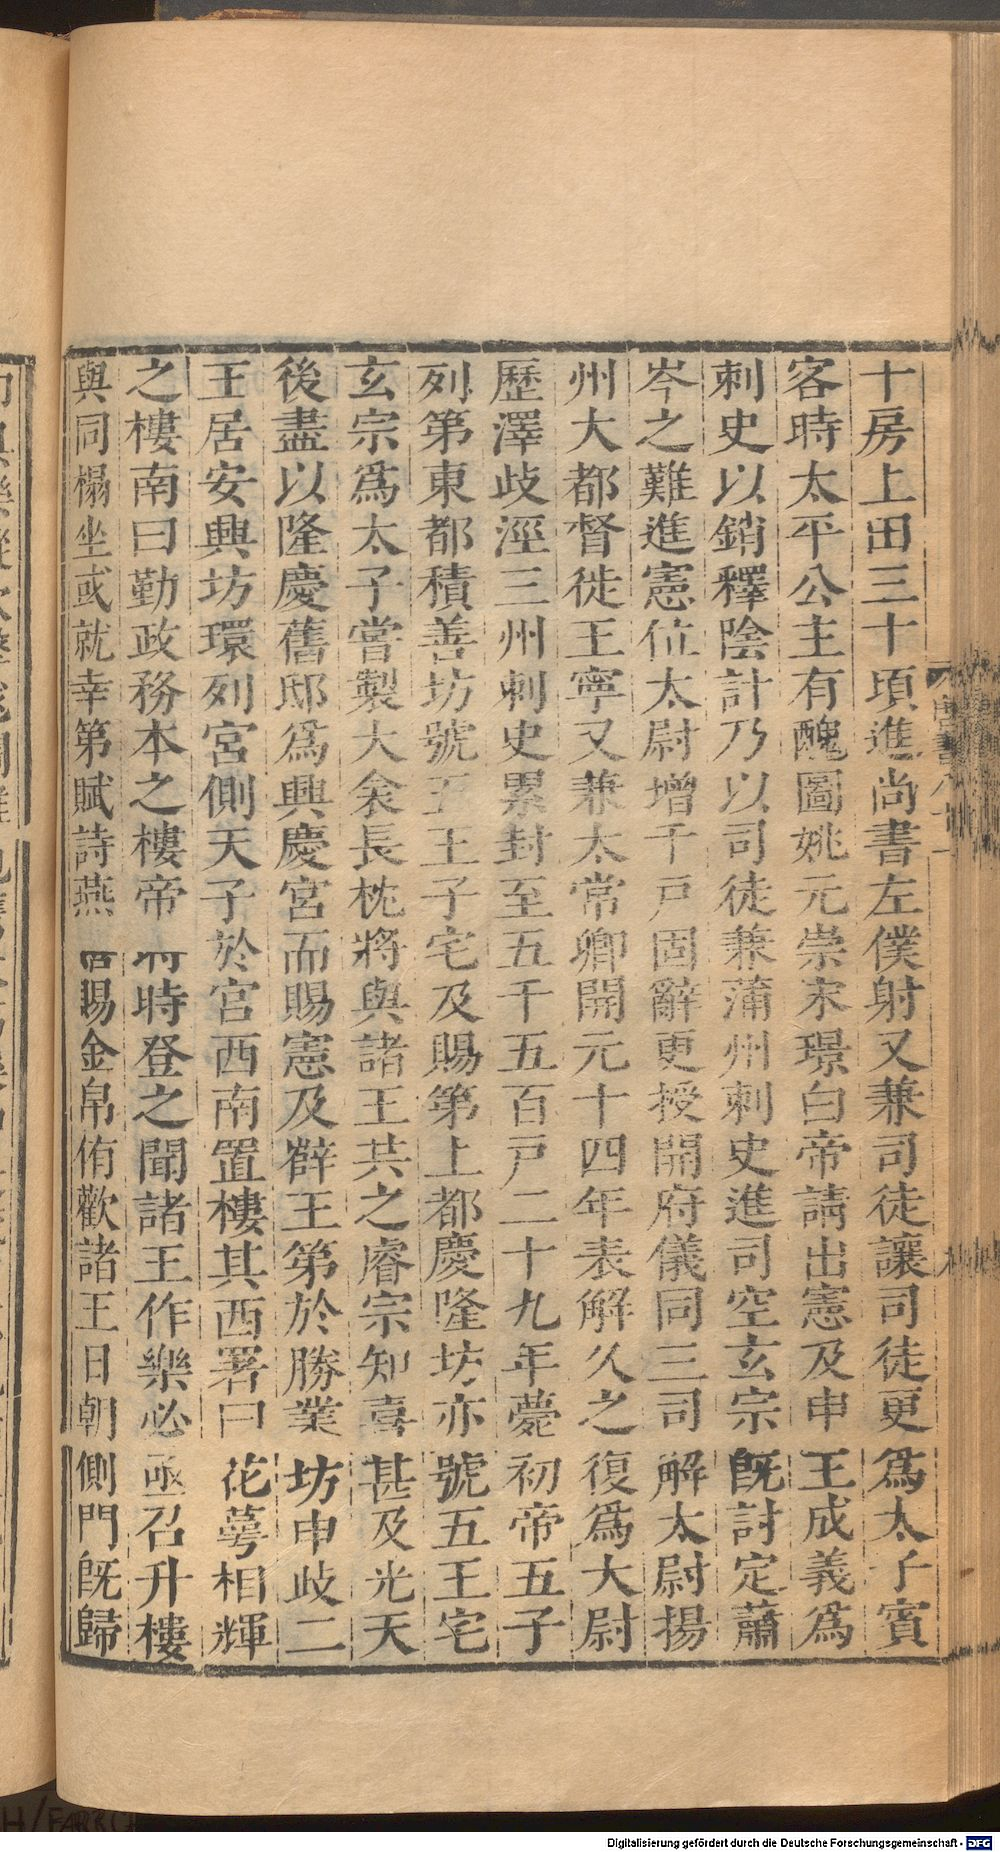 十房上田三十頃進尚書左僕射又兼司徒讓司徒更爲太子賓
客時太平公主有醜圖姚元崇宋璟白帝請出憲及申王成義爲
刺史以銷釋陰計乃以司徒兼蒲州刺史進司空玄宗旣討定蕭
岑之難進憲位太尉增千戶固辭更授開府儀同三司解太尉揚
州大都督徙王寧又兼太常卿開元十四年表解久之復爲大尉
歷澤歧涇三州刺史累封至五千五百戶二十九年薨初帝五子
列第東都積善坊號五王子宅及賜第上都慶隆坊亦號五王宅
玄宗爲太子嘗製大衾長枕將與諸王共之睿宗知喜甚及光天
後盡以隆慶舊邸爲興慶宮而賜憲及薛王第於勝業坊申歧二
王居安興坊環列宮側天子於宮西南置樓其西署曰花萼相輝
之樓南曰勤政務本之樓帝時登之聞諸王作樂必亟召升樓
與同榻坐或就幸第賦詩燕賜金帛侑歡諸王日朝側門旣歸
Digitalisierung gefördert durch die Deutsche Forschungsgemeinschaft - DFG